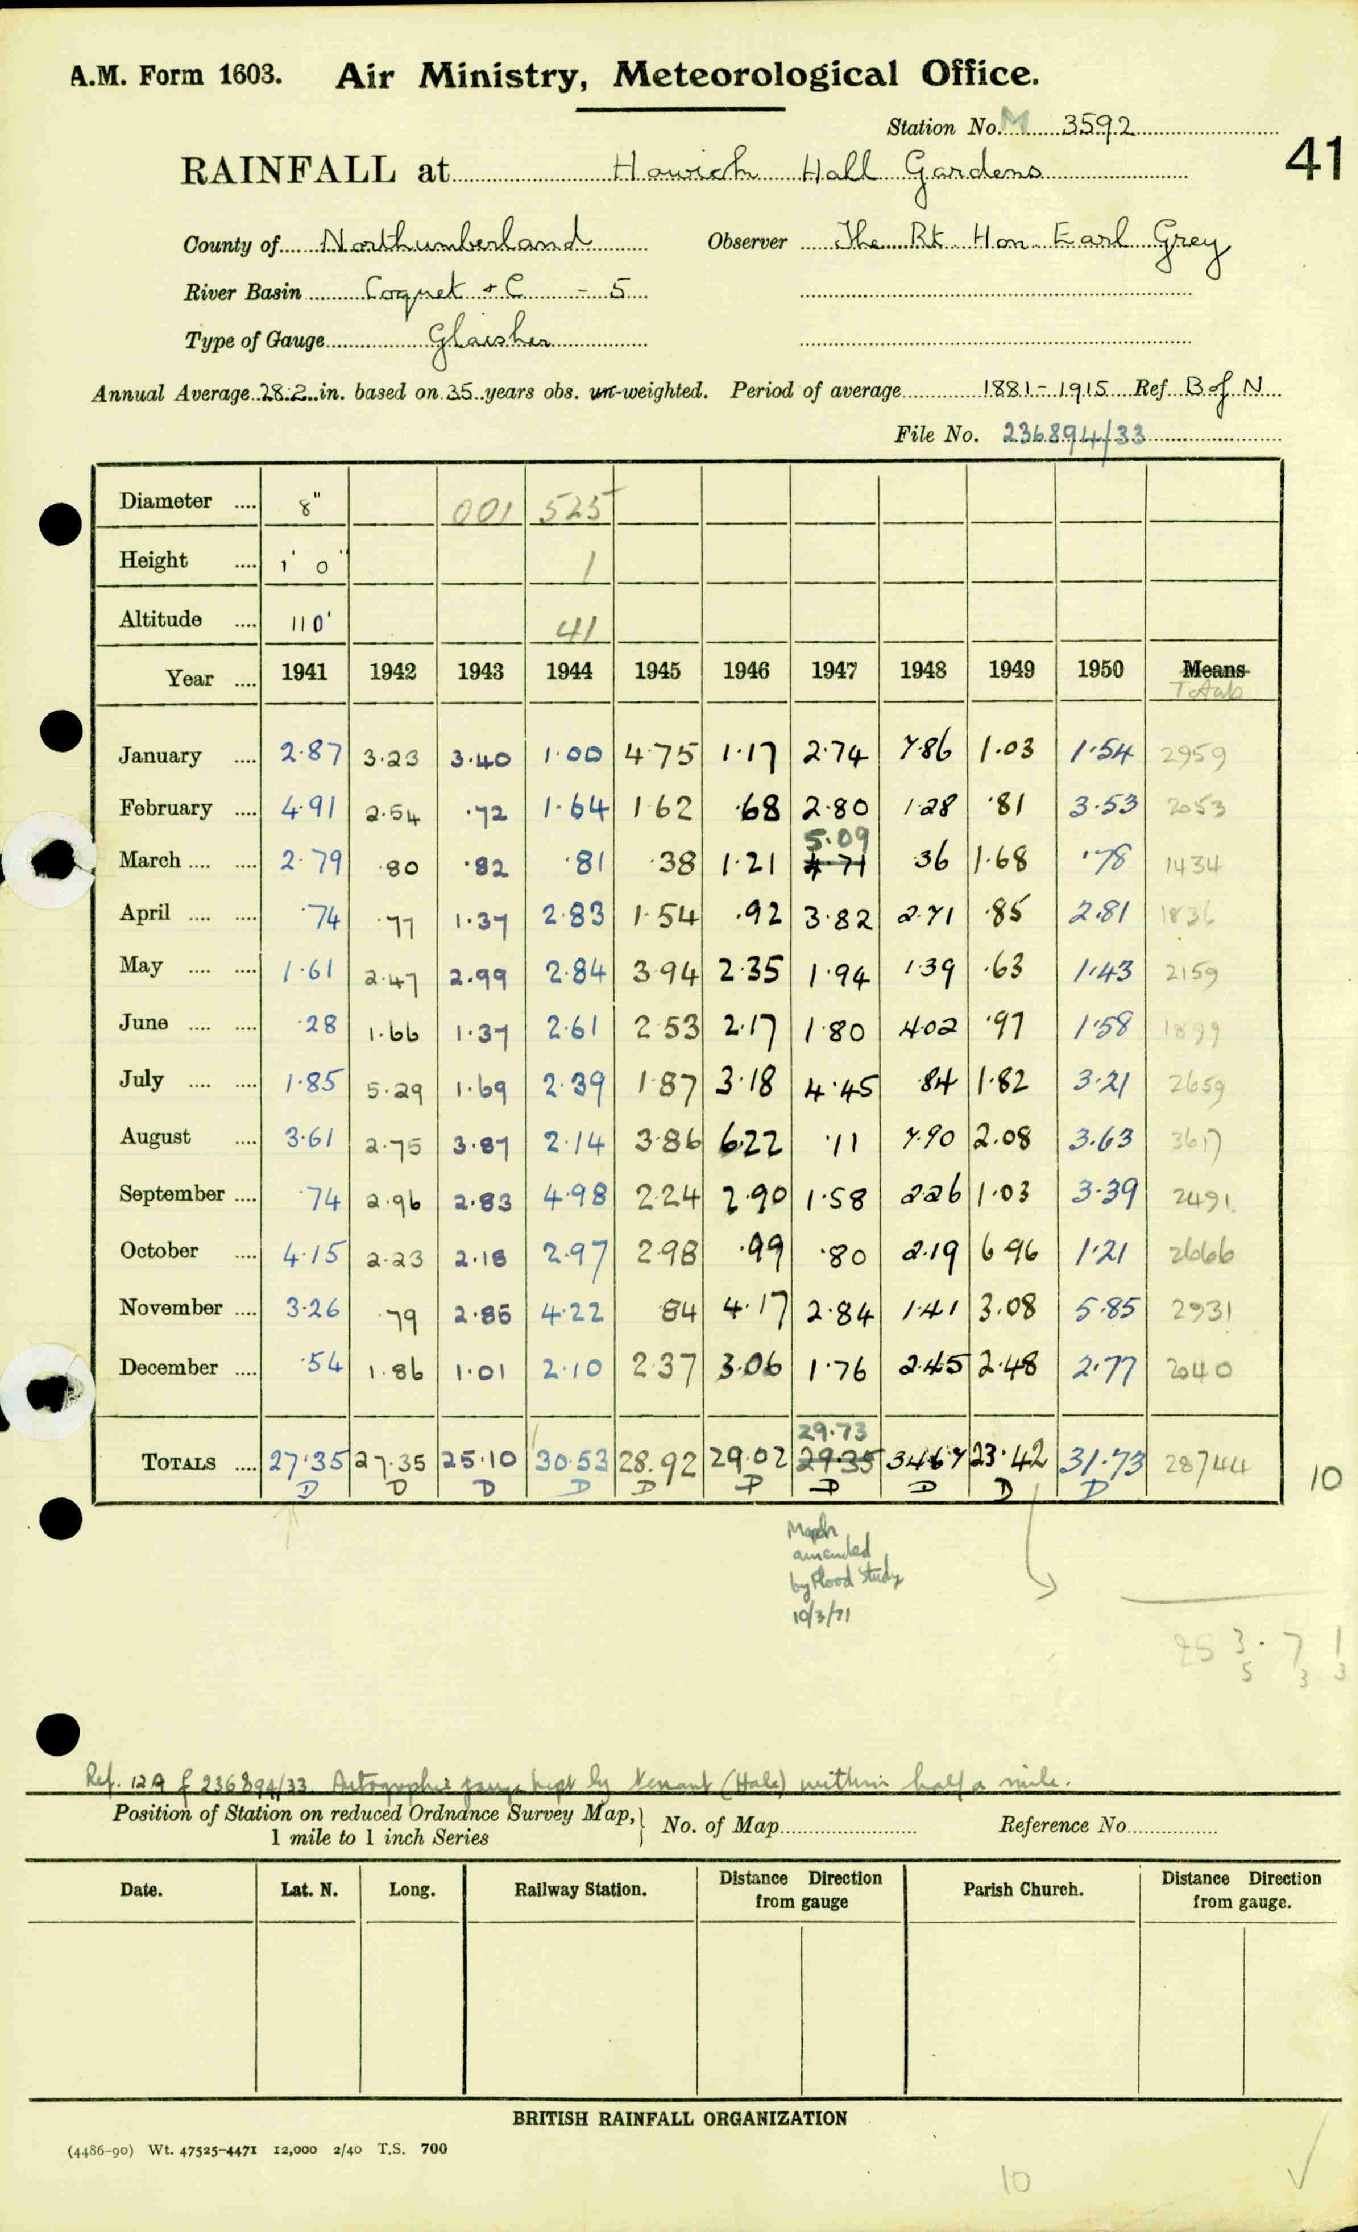 A.M. Form 1603. Air Ministry, Meteorological Office.
Station No. M 3592
41
RAINFALL at Howick Hall Gardens
County of Northumberland Observer The Rt Hon Earl Grey
River Basin Coquet + C - 5
Type of Gauge Glaisher
Annual Average 28.2 in. based on 35 years obs. un-weighted. Period of average 1881-1915 Ref B of N
File No. 236894/33
Diameter .... 8" 001 525
Height .... 1' 0" 1
Altitude .... 110' 41
Year .... 1941 1942 1943 1944 1945 1946 1947 1948 1949 1950 Means
Totals
January .... 2.87 3.23 3.40 1.00 4.75 1.17 2.74 7.86 1.03 1.54 2959
February .... 4.91 2.54 .72 1.64 1.62 .68 2.80 1.28 .81 3.53 2053
5.09
March .... .... 2.79 .80 .82 .81 .38 1.21 4.71 .36 1.68 .78 1434
April .... .... .74 .77 1.37 2.83 1.54 .92 3.82 2.71 .85 2.81 1836
May .... .... 1.61 2.47 2.99 2.84 3.94 2.35 1.94 1.39 .63 1.43 2159
June .... .... .28 1.66 1.37 2.61 2.53 2.17 1.80 4.02 .97 1.58 1899
July .... .... 1.85 5.29 1.69 2.39 1.87 3.18 4.45 .84 1.82 3.21 2659
August .... 3.61 2.75 3.87 2.14 3.86 6.22 .11 7.90 2.08 3.63 3617
September .... .74 2.96 2.83 4.98 2.24 2.90 1.58 2.26 1.03 3.39 2491
October .... 4.15 2.23 2.18 2.97 2.98 .99 .80 2.19 6.96 1.21 2666
November .... 3.26 .79 2.85 4.22 .84 4.17 2.84 1.41 3.08 5.85 2931
December .... .54 1.86 1.01 2.10 2.37 3.06 1.76 2.45 2.48 2.77 2040
29.73
TOTALS .... 27.35 27.35 25.10 30.53 28.92 29.02 29.35 34.67 23.42 31.73 28744
D D D D D D D D D D
10
March
amended
by Flood Study
10/3/71
253.71
5 3 3
Ref. 12A f 236894/33. Autographic gauge kept by tenant (Hale) within half a mile.
Position of Station on reduced Ordnance Survey Map,
1 mile to 1 inch Series
No. of Map Reference No.
Date. Lat. N. Long. Railway Station. Distance Direction from gauge Parish Church. Distance Direction from gauge.
BRITISH RAINFALL ORGANIZATION
(4486-90) Wt. 47525-4471 12,000 2/40 T.S. 700
10